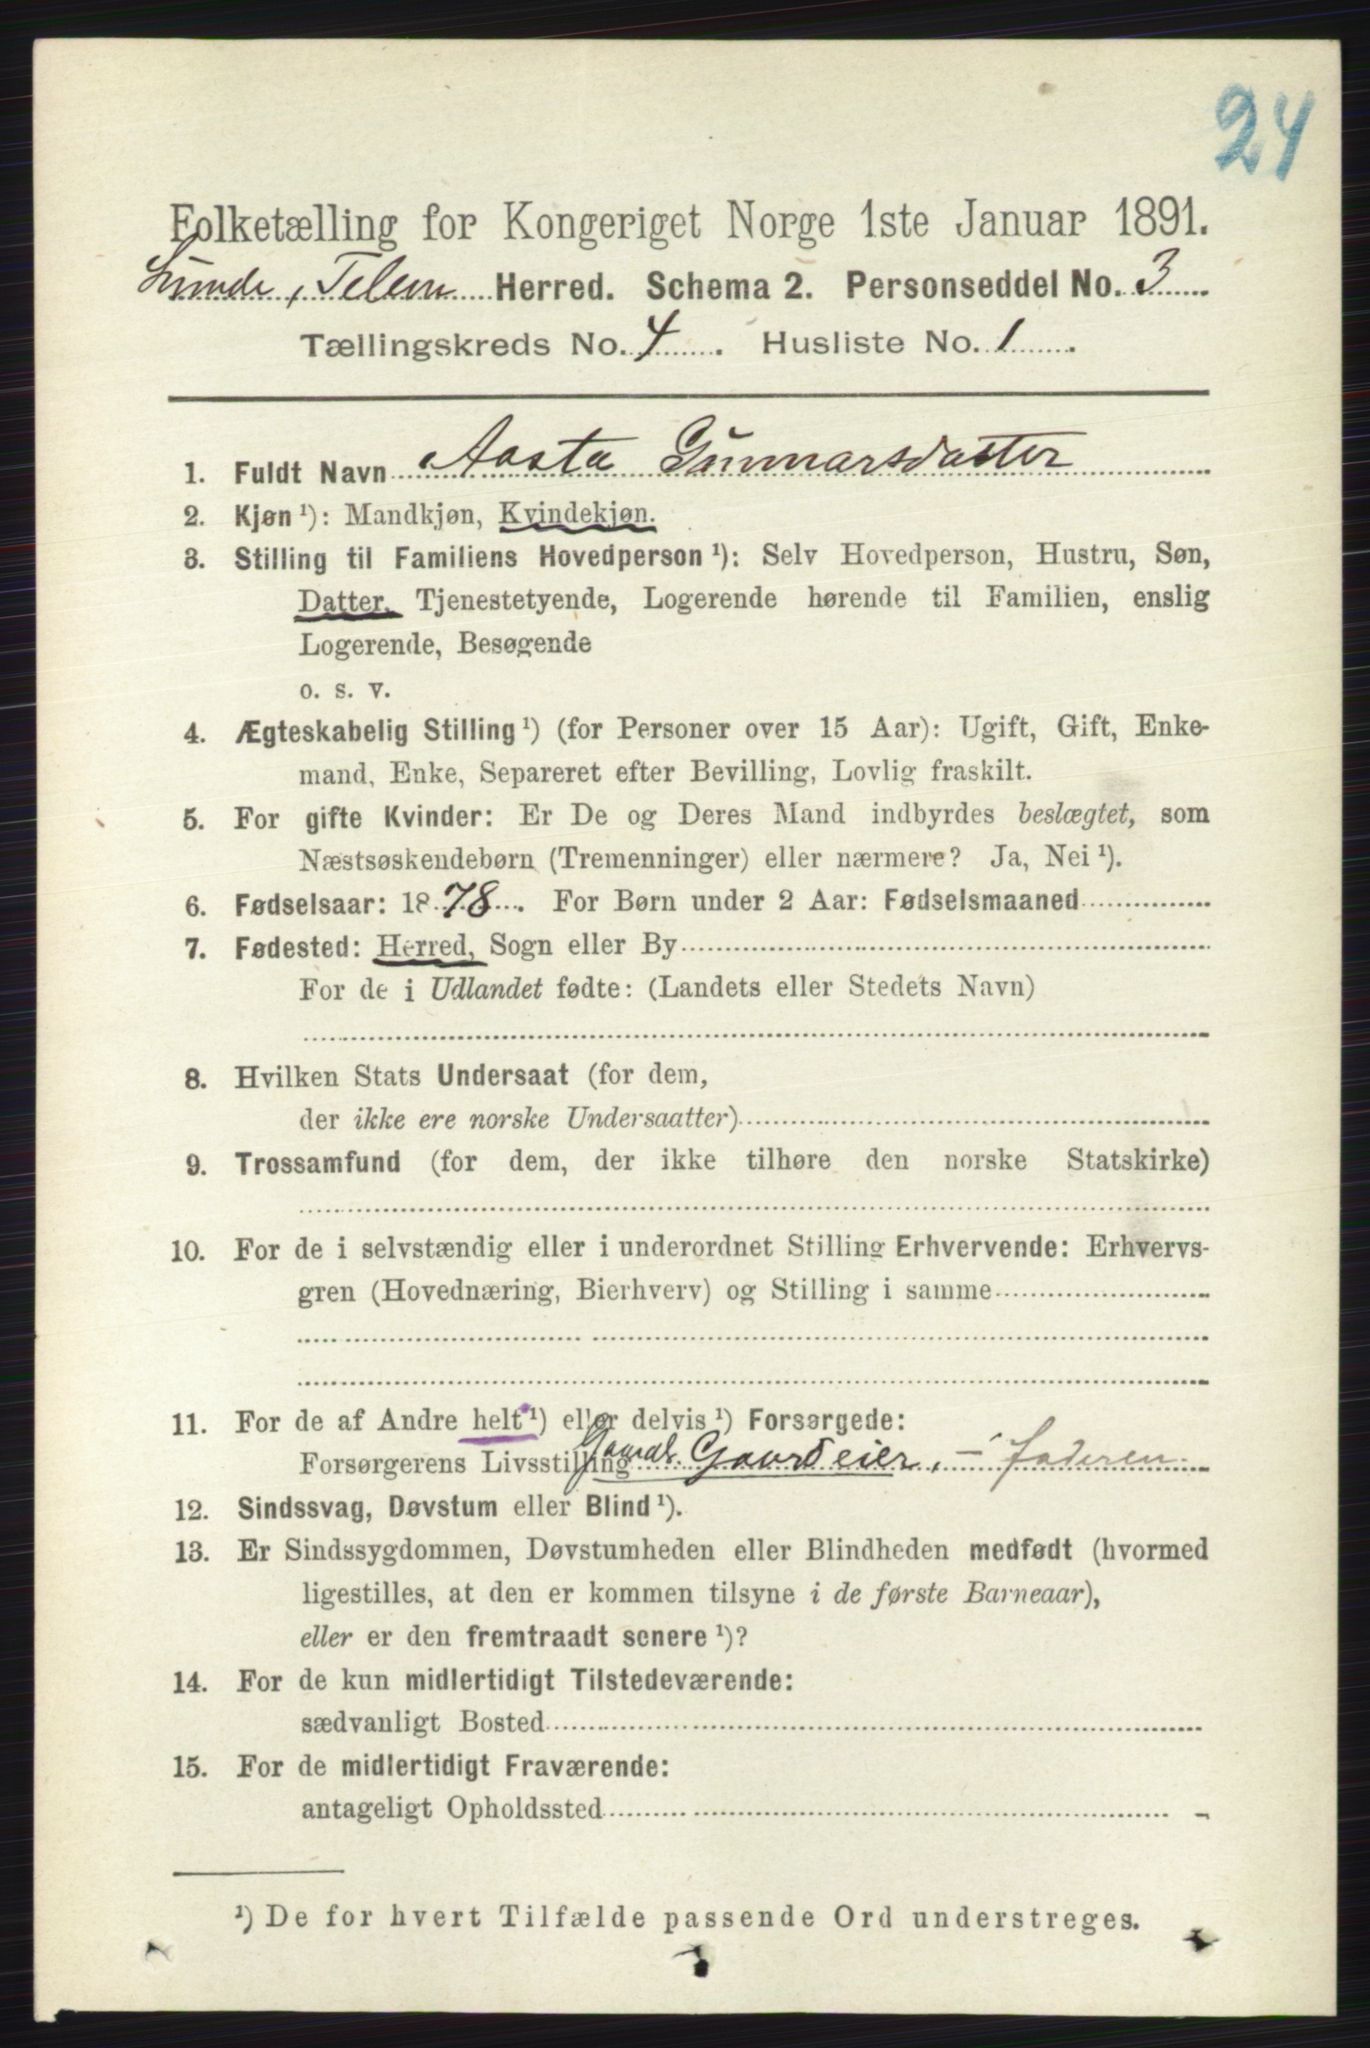 24
Folketælling for Kongeriget Norge 1ste Januar 1891.
Lunde, Telem Herred. Schema 2. Personseddel No. 3
Tællingskreds No. 4. Husliste No. 1.
1. Fuldt Navn Aasta Gunnarsdatter
2. Kjøn ¹): Mandkjøn, Kvindekjøn.
3. Stilling til Familiens Hovedperson ¹): Selv Hovedperson, Hustru, Søn,
Datter, Tjenestetyende, Logerende hørende til Familien, enslig
Logerende, Besøgende
o. s. v.
4. Ægteskabelig Stilling ¹) (for Personer over 15 Aar): Ugift, Gift, Enke-
mand, Enke, Separeret efter Bevilling, Lovlig fraskilt.
5. For gifte Kvinder: Er De og Deres Mand indbyrdes beslægtet, som
Næstsøskendebørn (Tremenninger) eller nærmere? Ja, Nei ¹).
6. Fødselsaar: 1878. For Børn under 2 Aar: Fødselsmaaned
7. Fødested: Herred, Sogn eller By
For de i Udlandet fødte: (Landets eller Stedets Navn)
8. Hvilken Stats Undersaat (for dem,
der ikke ere norske Undersaatter)
9. Trossamfund (for dem, der ikke tilhøre den norske Statskirke)
10. For de i selvstændig eller i underordnet Stilling Erhvervende: Erhvervs-
gren (Hovednæring, Bierhverv) og Stilling i samme
11. For de af Andre helt ¹) eller delvis ¹) Forsørgede:
Forsørgerens Livsstilling Gaardeier, - Faderen
12. Sindssvag, Døvstum eller Blind ¹).
13. Er Sindssygdommen, Døvstumheden eller Blindheden medfødt (hvormed
ligestilles, at den er kommen tilsyne i de første Barneaar),
eller er den fremtraadt senere ¹)?
14. For de kun midlertidigt Tilstedeværende:
sædvanligt Bosted
15. For de midlertidigt Fraværende:
antageligt Opholdssted
¹) De for hvert Tilfælde passende Ord understreges.